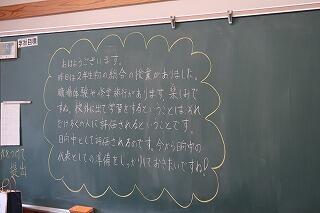 学習目標
おはようございます。
昨日は2年生初の総合の授業がありました。
職場体験や修学旅行があります。楽しみで
すね。校外に出て学習をするということは、それ
だけ多くの人に評価されるということです。
日向中として評価されるのです。今から日向中の
代表としての準備をしっかりしておきたいですね!